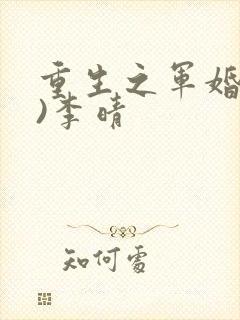 重生之军婚
)李晴
知何处